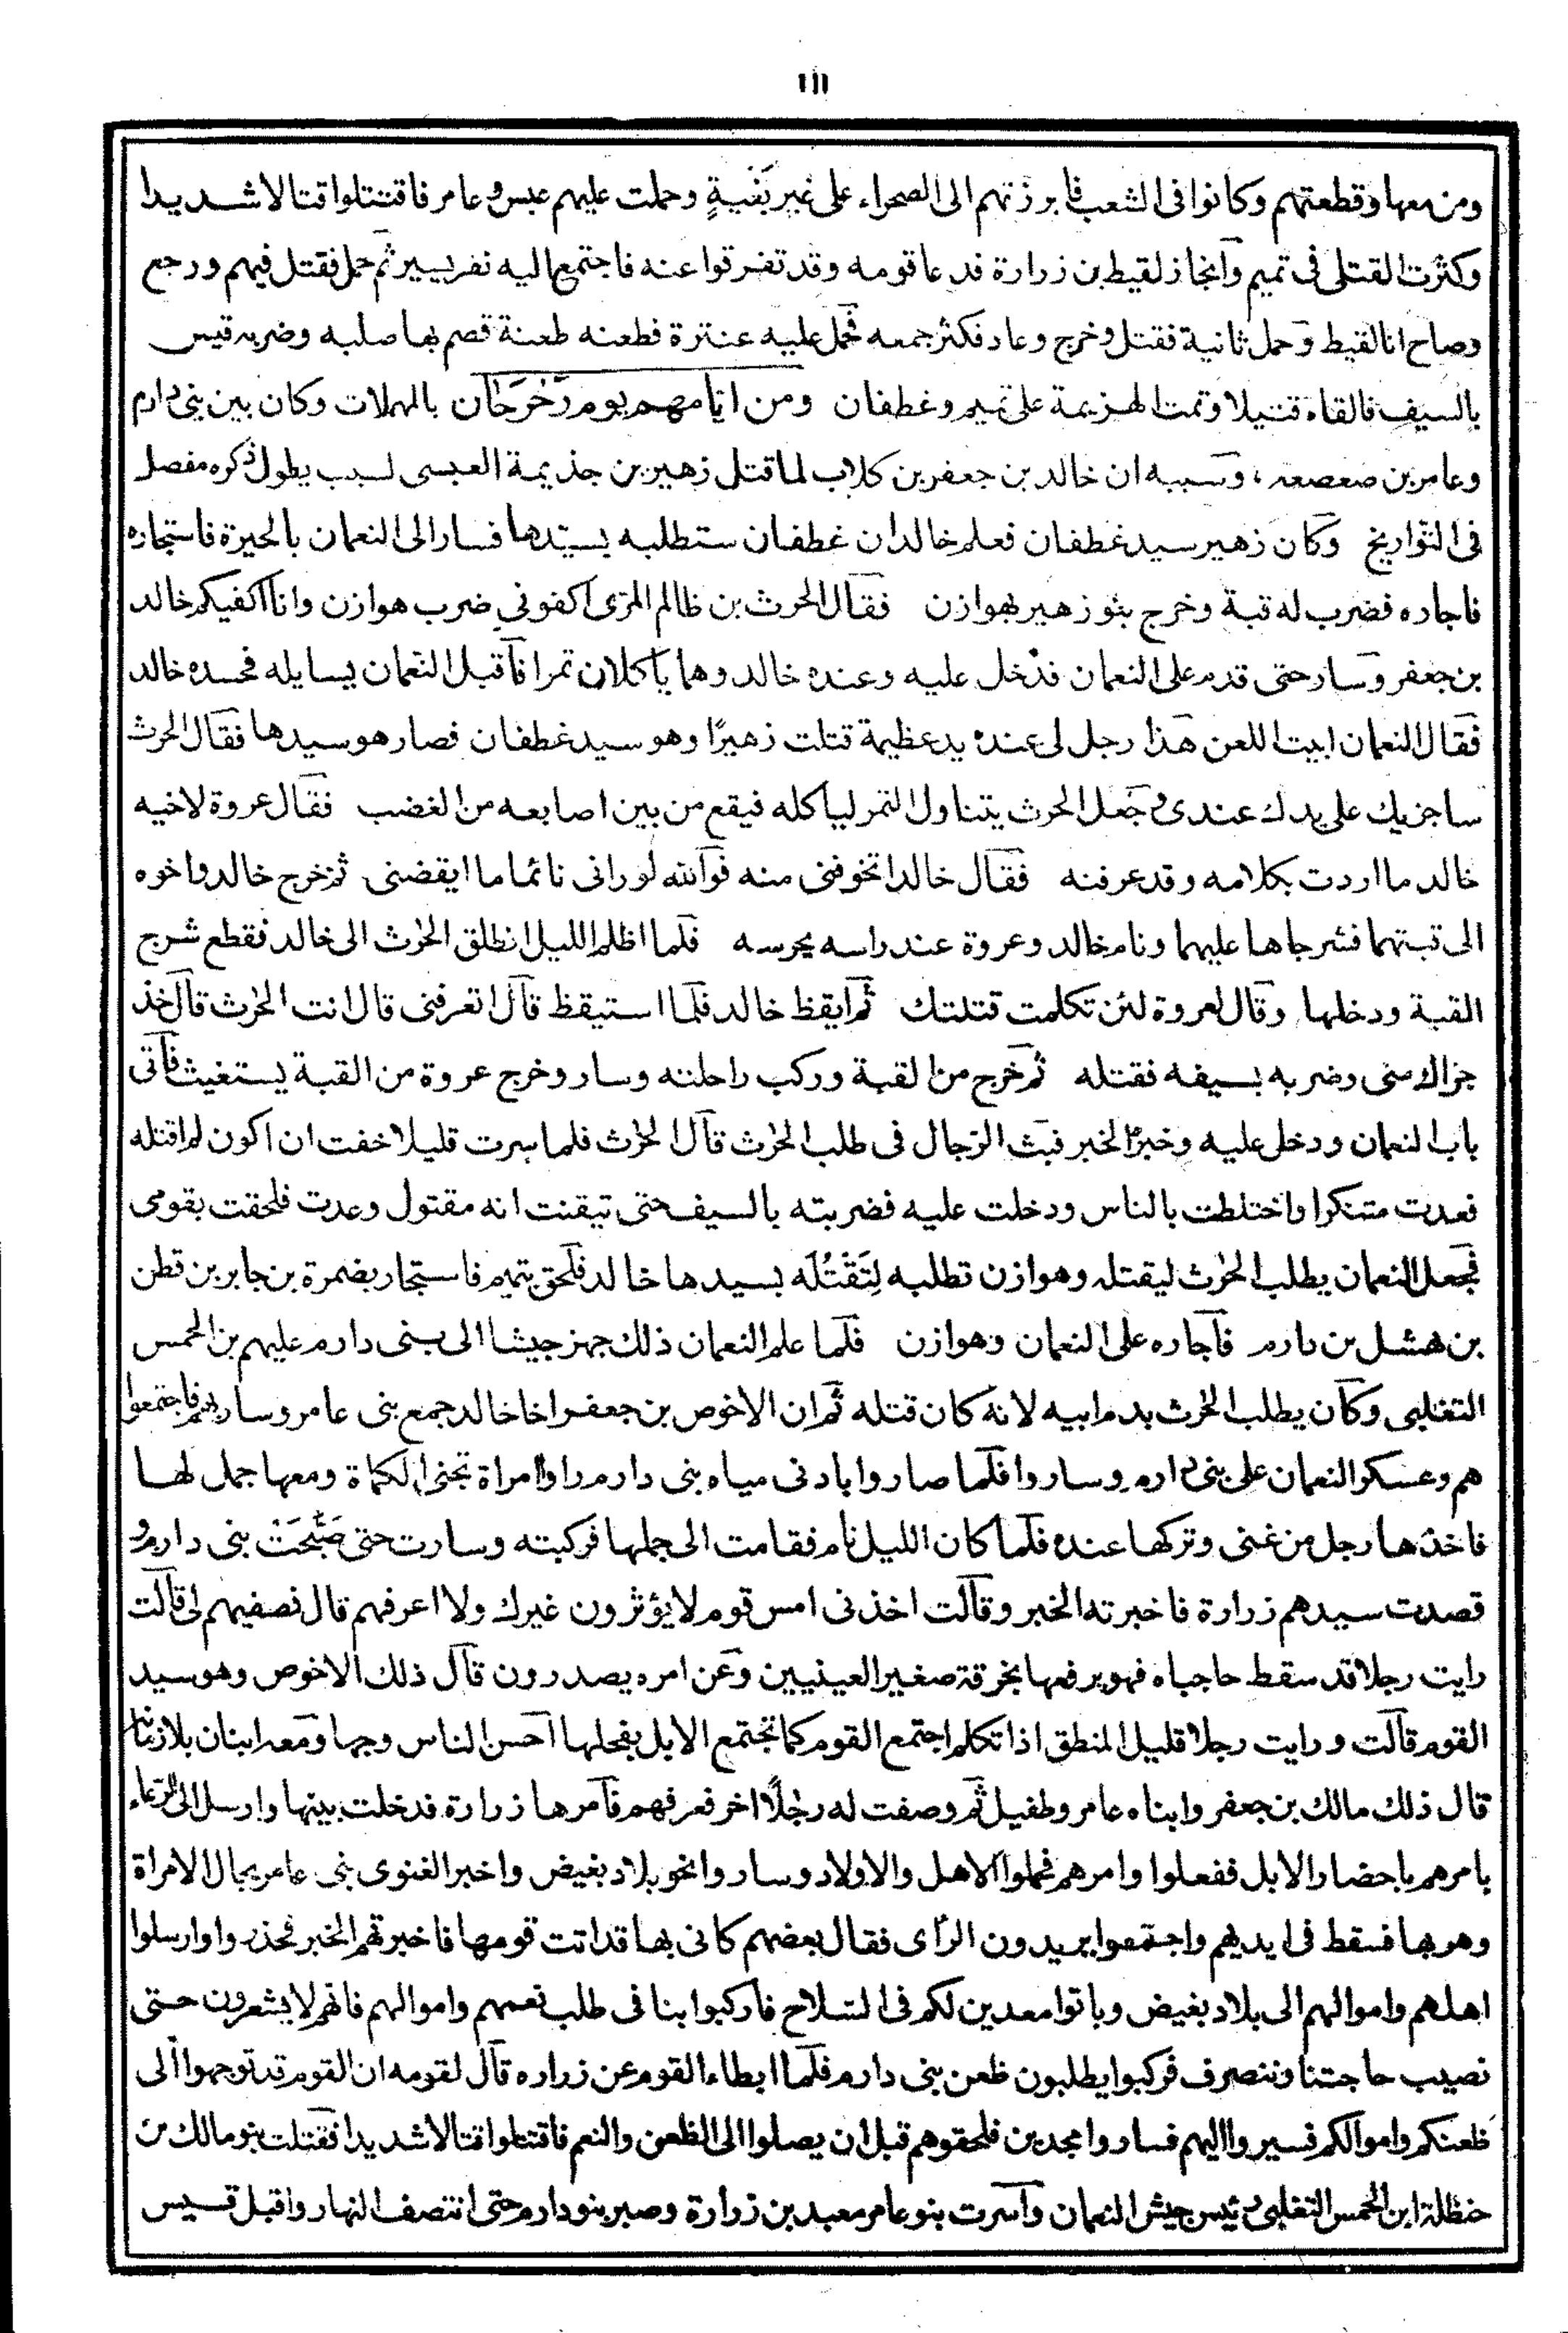 ١١١
ومن معها وقطعتهم وكانوا فى الشعب فابرزتهم الى الصحراء على غير بَغْيَةٍ وحملت عليهم عبس و عامر فاقتتلوا قتالا شديدا
وكثرت القتلى فى تميم وآنحاز لقيط بن زرارة فدعا قومه وقد تفرقوا عنه فاجتمع اليه نفر يسير ثم حمل فقتل فيهم ورجع
وصاح انا لقيط وحمل ثانية فقتل وخرج وعاد فكثر جمعه فحمل عليه عنترة فطعنه طعنة قصم بها صلبه وضربه قيس
بالسيف فالقاه قتيلا وتمت الهزيمة على تميم وغطفان ومن ايامهم يوم رَحْرَحَان بالمهملات وكان بين بنى دارم
وعامر بن صعصعه ، وسببه ان خالد بن جعفر بن كلاب لما قتل زهير بن جذيمة العبسى لسبب يطول ذكره مفصل
فى التواريخ وكان زهير سيد غطفان فعلم خالد ان غطفان ستطلبه بسيدها فسار الى النعمان بالحيرة فاستجاره
فاجاره فضرب له قبة وخرج بنو زهير لهوازن فقال الحرث بن ظالم المرى اكفونى ضرب هوازن وانا اكفيكم خالد
بن جعفر وسار حتى قدم على النعمان فدخل عليه وعنده خالد وهما ياكلان تمرا فاقبل النعمان يسايله فحسده خالد
فقال النعمان ابيت اللعن هذا رجل لى عنده يد عظيمة قتلت زهيرًا وهو سيد غطفان فصار هو سيدها فقال الحرث
ساجزيك على يدك عندى و جعل الحرث يتناول التمر لياكله فيقع من بين اصابعه من الغضب فقال عروة لاخيه
خالد ما اردت بكلامه وقد عرفته فقال خالد اتخوفنى منه فوآلله لو رانى نائما ما ايقضنى ثم خرج خالد واخوه
الى قبتهما فشرجاها عليهما ونام خالد وعروة عند راسه يحرسه فلما اظلم الليل انطلق الحرث الى خالد فقطع شرج
القبة ودخلها وقال لعروة لئن تكلمت قتلتك ثم ايقظ خالد فلما استيقظ قال اتعرفنى قال انت الحرث قال خذ
جزاك منى وضربه بسيفه فقتله ثم خرج من القبة وركب راحلته وسار وخرج عروة من القبة يستغيث فاتى
باب النعمان ودخل عليه وخبره الخبر فبث الرجال فى طلب الحرث قال الحرث فلما سرت قليلا خفت ان اكون لم اقتله
فعدت متنكرا واختلطت بالناس ودخلت عليه فضربته بالسيف حتى تيقنت انه مقتول وعدت فلحقت بقومى
فجعل النعمان يطلب الحرث ليقتله وهوازن تطلبه لِتَقْتُلَه بسيدها خالد فلحق بتميم فاستجار بضمرة بن جابر بن قطن
بن هشل بن دارم فاجاره على النعمان وهوازن فلما علم النعمان ذلك جهز جيشا الى بنى دارم عليهم بن الخمس
التغلبى وكان يطلب الحرث بدم ابيه لانه كان قتله ثم ان الاخوص بن جعفر اخا خالد جمع بنى عامر وسار بهم فاجتمعوا
هم وعسكر النعمان على بنى دارم وساروا فلما صاروا بادنى مياه بنى دارم راوا امراة تجنى الكماة ومعها جمل لها
فاخذها رجل من غنى وتركها عنده فلما كان الليل نام فقامت الى جملها فركبته وسارت حتى صَبَّحَتْ بنى دارم و
قصدت سيدهم زرارة فاخبرته الخبر وقالت اخذنى امس قوم لا يؤثرون غيرك ولا اعرفهم قال فصفيهم لى قالت
رايت رجلا قد سقط حاجباه فهو يرفعها بخرقة صغير العينيين وعن امره يصدرون قال ذلك الاخوص وهو سيد
القوم قالت ورايت رجلا قليل المنطق اذا تكلم اجتمع القوم كما تجتمع الابل بفحلها احسن الناس وجها ومعه ابنان يلازمانه
قال ذلك مالك بن جعفر وابناه عامر وطفيل ثم وصفت له رجلًا اخر فعرفهم فامرها زرارة فدخلت بيتها وارسل الى الرعاء
يامرهم باحضار الابل ففعلوا وامرهم فحملوا الاهل والاولاد وساروا نحو بلاد بغيض واخبر الغنوى بنى عامر بحال الامراة
وهربها فسقط فى ايديهم واجتمعوا يريدون الرأى فقال بعضهم كانى بها قد اتت قومها فاخبرتهم الخبر فحذروا وارسلوا
اهلهم واموالهم الى بلاد بغيض وباتوا معدين لكم فى السلاح فاركبوا بنا فى طلب نعمهم واموالهم فانهم لا يشعرون حتى
نصيب حاجتنا وننصرف فركبوا يطلبون ظعن بنى دارم فلما ابطاء القوم عن زراره قال لقومه ان القوم قد توجهوا الى
ظعنكم واموالكم فسيروا اليهم فساروا مجدين فلحقوهم قبل ان يصلوا الى الظعن والنعم فاقتتلوا قتالا شديدا فقتلت بنو مالك بن
حنظلة ابن الخمس التغلبى رئيس جيش النعمان وآسرت بنو عامر معبد بن زرارة وصبر بنو دارم حتى انتصف النهار واقبل قيس